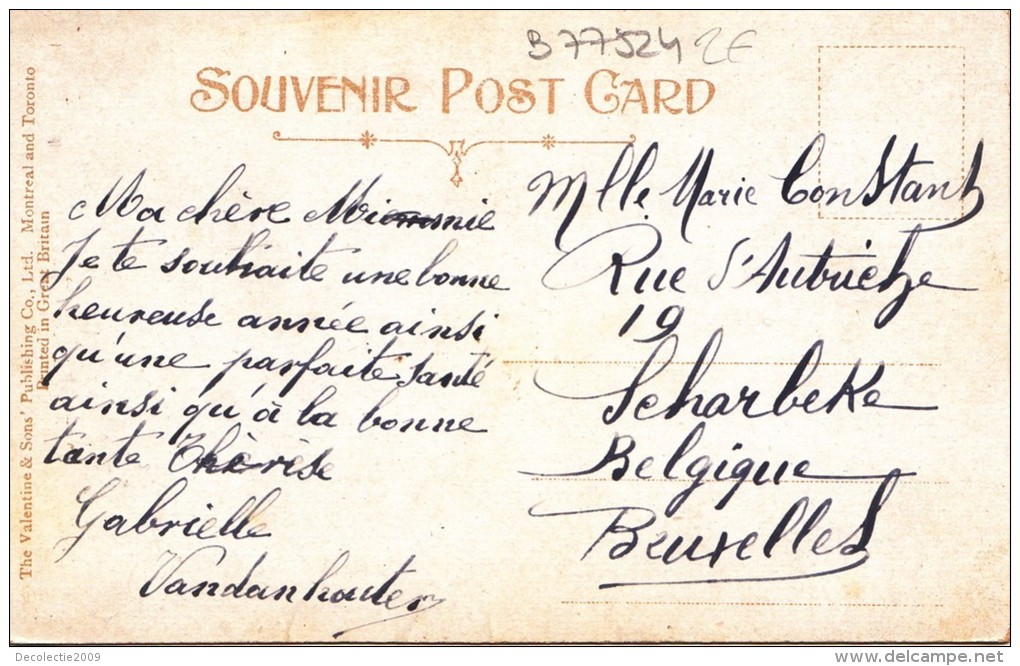 B 77524 2€
SOUVENIR POST CARD
The Valentine & Sons' Publishing Co., Ltd. Montreal and Toronto
Printed in Great Britain
Ma chère Mimmie
Je te souhaite une bonne
heureuse année ainsi
qu'une parfaite santé
ainsi qu'à la bonne
tante Thérèse
Gabrielle
Vandanhouten
Mlle Marie Constant
Rue d'Autriche
19
Scharbeke
Belgique
Bruxelles
Decolectie2009
www.delcampe.net